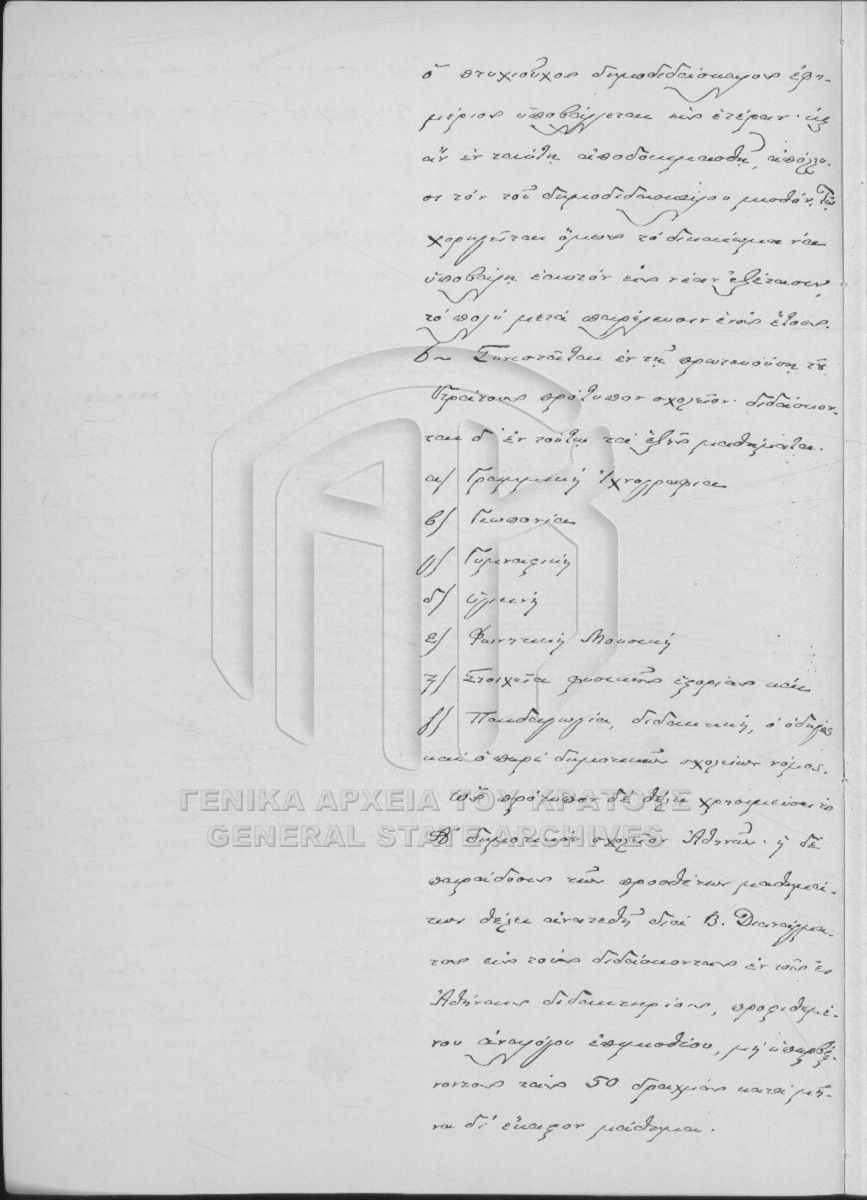 ὁ πτυχιοῦχος δημοδιδάσκαλος ἐφη-
μέριος ὑποβάλλεται εἰς ἑτέραν· κἂς
ἂν ἐν ταύτῃ ἀποδοκιμασθῇ, ἀπόλλυ-
σι τόν τοῦ δημοδιδασκάλου μισθόν. Τῷ
χορηγεῖται ὅμως τό δικαίωμα νά
ὑποβάλῃ ἑαυτόν εἰς νέαν ἐξέτασιν,
τό πολύ μετά παρέλευσιν ἑνός ἔτους.
6~ Συνιστᾶται ἐν τῇ πρωτευούσῃ τοῦ
Κράτους πρότυπον σχολεῖον· διδάσκον-
ται δ' ἐν τούτῳ τά ἑξῆς μαθήματα.
α) Γραμμική Ἰχνογραφία
β) Γεωπονία
γ) Γυμναστική
δ) ὑλική
ε) Φωνητική Μουσική
ϛ) Στοιχεῖα φυσικῆς ἱστορίας καί
ζ) Παιδαγωγία, διδακτική, ὁ ὁδηγός
καί ὁ περί δημοτικῶν σχολείων νόμος.
Ὡς πρότυπον δέ θέλει χρησιμεύσει τό
Α' δημοτικόν σχολεῖον Ἀθηνῶν· ἡ δέ
παράδοσις τῶν προσθέτων μαθημά-
των θέλει ἀνατεθῇ διά Β. Διατάγμα-
τος εἰς τούς διδάσκοντας ἐν τοῖς ἐν
Ἀθήναις διδακτηρίοις, προστιθεμέ-
νου ἀναλόγου ἐπιμισθίου, μή ὑπερβαί-
νοντος τάς 50 δραχμάς κατά μῆ-
να δι' ἕκαστον μάθημα.
ΓΕΝΙΚΑ ΑΡΧΕΙΑ ΤΟΥ ΚΡΑΤΟΥΣ
GENERAL STATE ARCHIVES